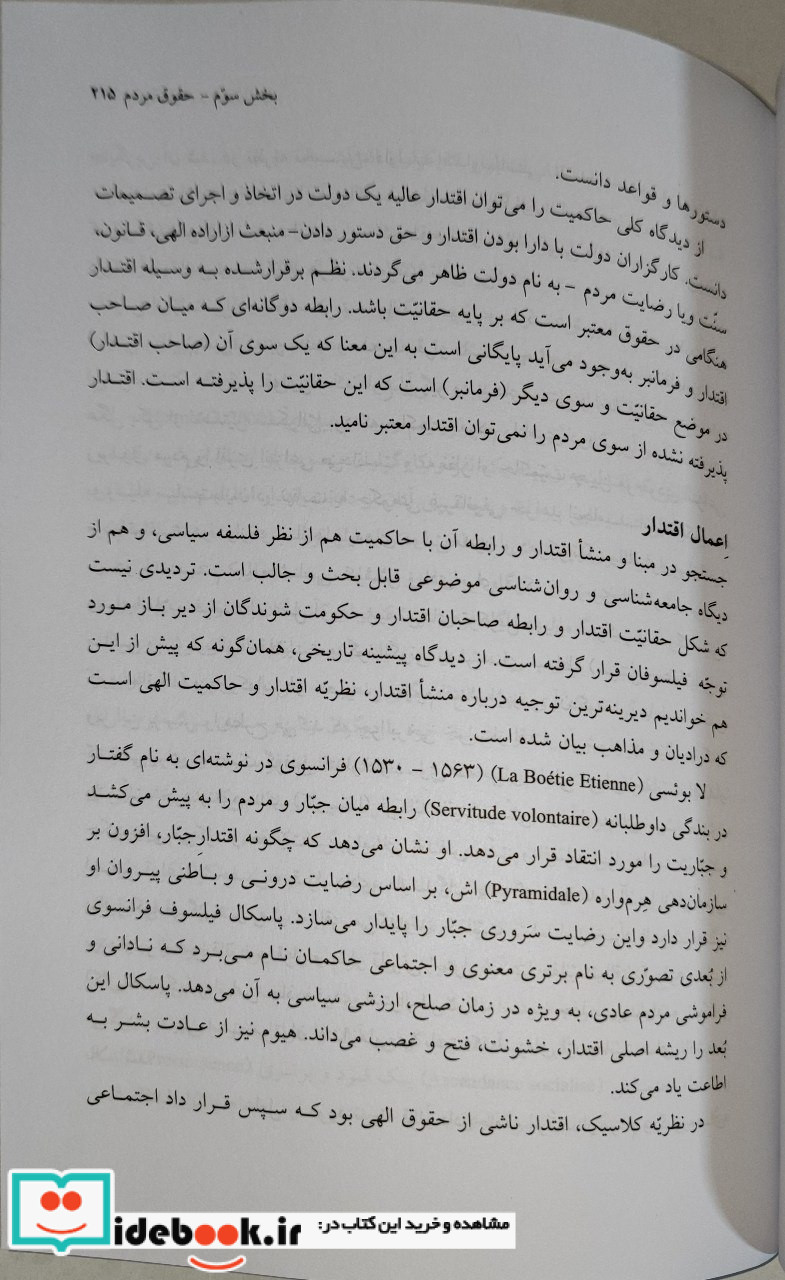 بخش سوّم – حقوق مردم ۲۱۵
دستورها و قواعد دانست.
از دیدگاه کلی حاکمیت را می‌توان اقتدار عالیه یک دولت در اتخاذ و اجرای تصمیمات
دانست. کارگزاران دولت با دارا بودن اقتدار و حق دستور دادن– منبعث ازاراده الهی، قانون،
سنّت ویا رضایت مردم – به نام دولت ظاهر می‌گردند. نظم برقرارشده به وسیله اقتدار
هنگامی در حقوق معتبر است که بر پایه حقانیّت باشد. رابطه دوگانه‌ای که میان صاحب
اقتدار و فرمانبر به‌وجود می‌آید پایگانی است به این معنا که یک سوی آن (صاحب اقتدار)
در موضع حقانیّت و سوی دیگر (فرمانبر) است که این حقانیّت را پذیرفته است. اقتدار
پذیرفته نشده از سوی مردم را نمی‌توان اقتدار معتبر نامید.
اِعمال اقتدار
جستجو در مبنا و منشأ اقتدار و رابطه آن با حاکمیت هم از نظر فلسفه سیاسی، و هم از
دیگاه جامعه‌شناسی و روان‌شناسی موضوعی قابل بحث و جالب است. تردیدی نیست
که شکل حقانیّت اقتدار و رابطه صاحبان اقتدار و حکومت شوندگان از دیر باز مورد
توجّه فیلسوفان قرار گرفته است. از دیدگاه پیشینه تاریخی، همان‌گونه که پیش از این
هم خواندیم دیرینه‌ترین توجیه درباره منشأ اقتدار، نظریّه اقتدار و حاکمیت الهی است
که درادیان و مذاهب بیان شده است.
لا بوئسی (La Boétie Etienne) (۱۵۶۳ – ۱۵۳۰) فرانسوی در نوشته‌ای به نام گفتار
در بندگی داوطلبانه (Servitude volontaire) رابطه میان جبّار و مردم را به پیش می‌کشد
و جبّاریت را مورد انتقاد قرار می‌دهد. او نشان می‌دهد که چگونه اقتدارِجبّار، افزون بر
سازمان‌دهی هِرم‌واره (Pyramidale) اش، بر اساس رضایت درونی و باطنی پیروان او
نیز قرار دارد واین رضایت سَروری جبّار را پایدار می‌سازد. پاسکال فیلسوف فرانسوی
از بُعدی تصوّری به نام برتری معنوی و اجتماعی حاکمان نام می‌برد که نادانی و
فراموشی مردم عادی، به ویژه در زمان صلح، ارزشی سیاسی به آن می‌دهد. پاسکال این
بُعد را ریشه اصلی اقتدار، خشونت، فتح و غصب می‌داند. هیوم نیز از عادت بشر به
اطاعت یاد می‌کند.
در نظریّه کلاسیک، اقتدار ناشی از حقوق الهی بود که سپس قرار داد اجتماعی
idebook.ir مشاهده و خرید این کتاب در: